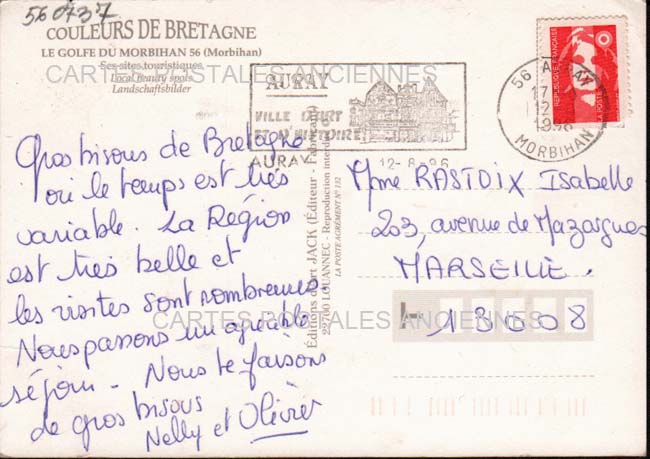 560737
COULEURS DE BRETAGNE
LE GOLFE DU MORBIHAN 56 (Morbihan)
Ses sites touristiques
Local beauty spots
Landschaftsbilder
CARTES POSTALES ANCIENNES
AURAY
VILLE D'ART
ET D'HISTOIRE
AURAY
12-8-96
56 AURAY
17
12
1996
MORBIHAN
REPUBLIQUE FRANÇAISE
LA POSTE
Gros bisous de Bretagne
où le temps est très
variable. La Région
est très belle et
les visites sont nombreuses.
Nous passons un agréable
séjour - Nous te faisons
de gros bisous
Nelly et Olivier
Editions d'art JACK (Éditeur - Fabricant)
22700 LOUANNEC - Reproduction interdite
LA POSTE AGRÉMENT N° 132
Mme RASTOIX Isabelle
203, avenue de Mazargues
MARSEILLE.
13008
CARTES POSTALES ANCIENNES